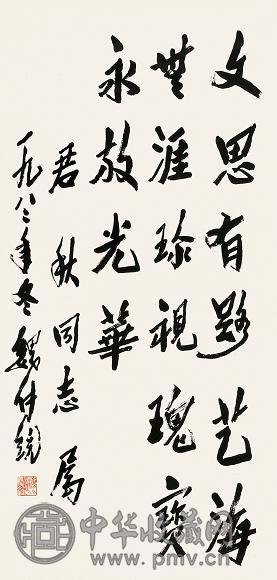 文思有路艺海
無涯珍視瑰寶
永放光華
君秋同志属
一九八二年冬魏传统
中华收藏网
www.pmv.cn